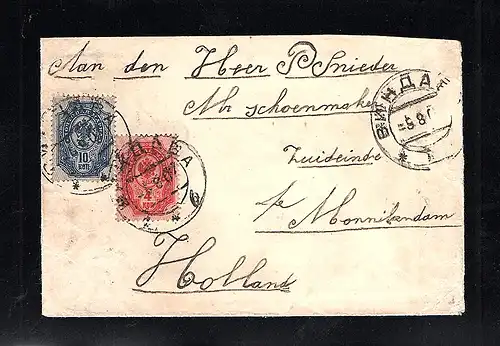 Aan den Heer P Snieder
Mr schoenmaker
Zuideinde
te Monnikendam
Holland
ВИНДАВА
10
КОП
ВИНДАВА